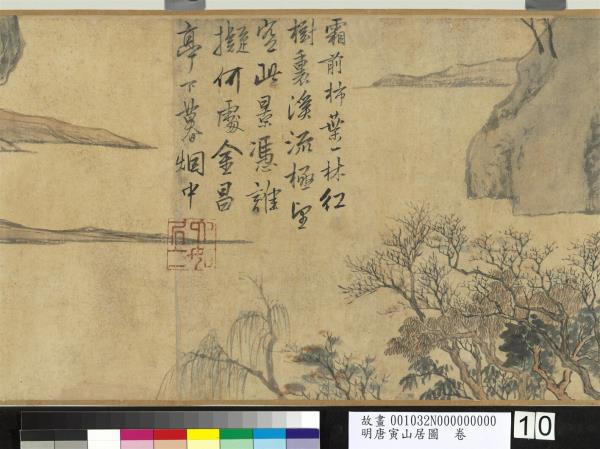 霜前柿葉一林紅
樹裏溪流極望
空此景憑誰
擬何處金昌
亭下暮烟中
故畫 001032N000000000
明唐寅山居圖 卷
10